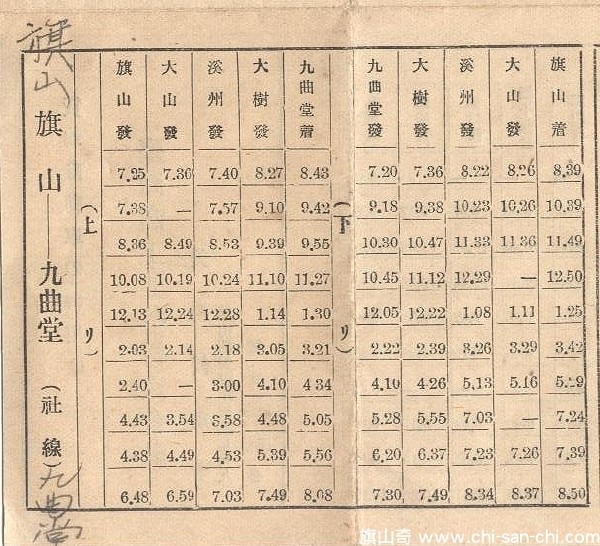 旗山
旗山 九曲堂 (社線)
九曲堂
(上リ)
旗山發 大山發 溪州發 大樹發 九曲堂着
7.25 7.36 7.40 8.27 8.43
7.38 — 7.57 9.10 9.42
8.36 8.49 8.53 9.39 9.55
10.08 10.19 10.24 11.10 11.27
12.13 12.24 12.28 1.14 1.30
2.03 2.14 2.18 3.05 3.21
2.40 — 3.00 4.10 4.34
4.43 3.54 3.58 4.48 5.05
4.38 4.49 4.53 5.39 5.56
6.48 6.59 7.03 7.49 8.08
(下リ)
九曲堂發 大樹發 溪州發 大山發 旗山着
7.20 7.36 8.22 8.26 8.39
9.18 9.38 10.23 10.26 10.39
10.30 10.47 11.33 11.36 11.49
10.45 11.12 12.29 — 12.50
12.05 12.22 1.08 1.11 1.25
2.22 2.39 3.26 3.29 3.42
4.10 4.26 5.13 5.16 5.29
5.28 5.55 7.03 — 7.24
6.20 6.37 7.23 7.26 7.39
7.30 7.49 8.34 8.37 8.50
旗山奇 www.chi-san-chi.com